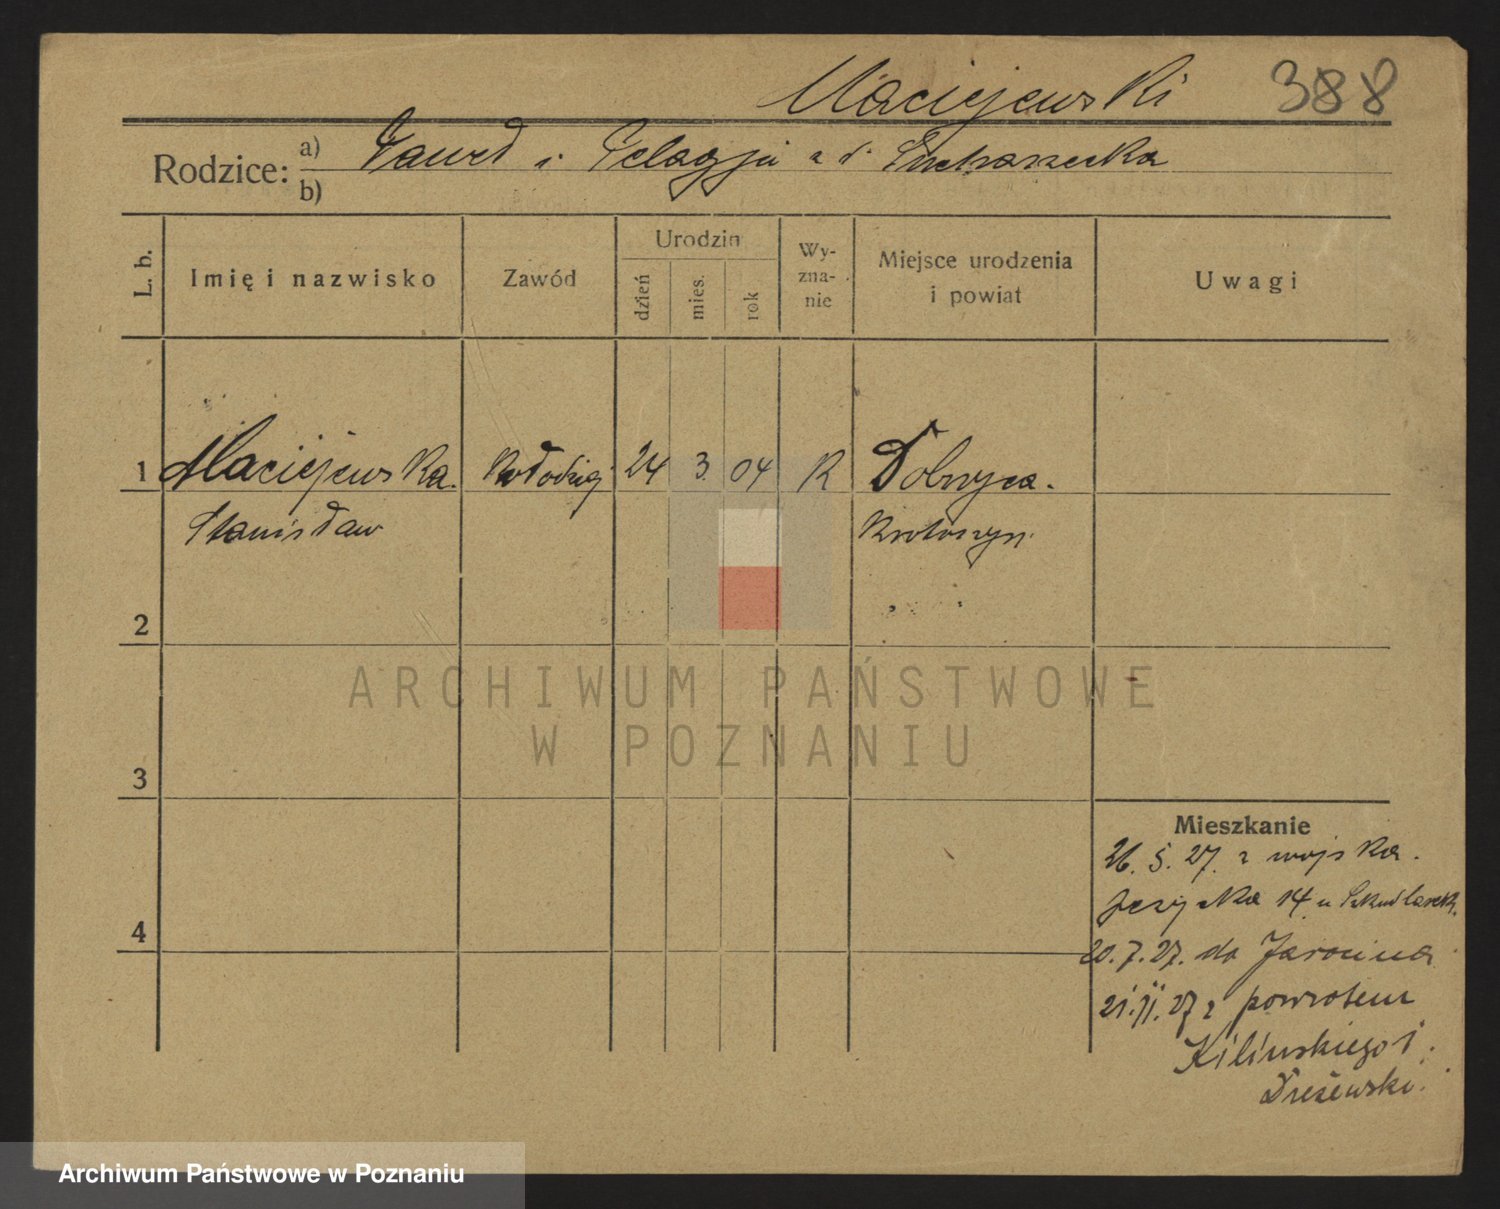 Maciejewski 388
Rodzice: a) Paweł i Pelagja z d. Sucharzecka
b)
L. b. Imię i nazwisko Zawód Urodzin dzień mies. rok Wy-zna-nie Miejsce urodzenia i powiat Uwagi
1 Maciejewska. Kołodziej 24 3 04 R Dobrzyca.
Stanisław Krotoszyn.
2
ARCHIWUM PAŃSTWOWE
W POZNANIU
3
Mieszkanie
26. 5. 27. z wojska.
14 u
4
20. 7. 27. do Jarocina
21. 11. 27 z powrotem
Kilińskiego 1.
Archiwum Państwowe w Poznaniu